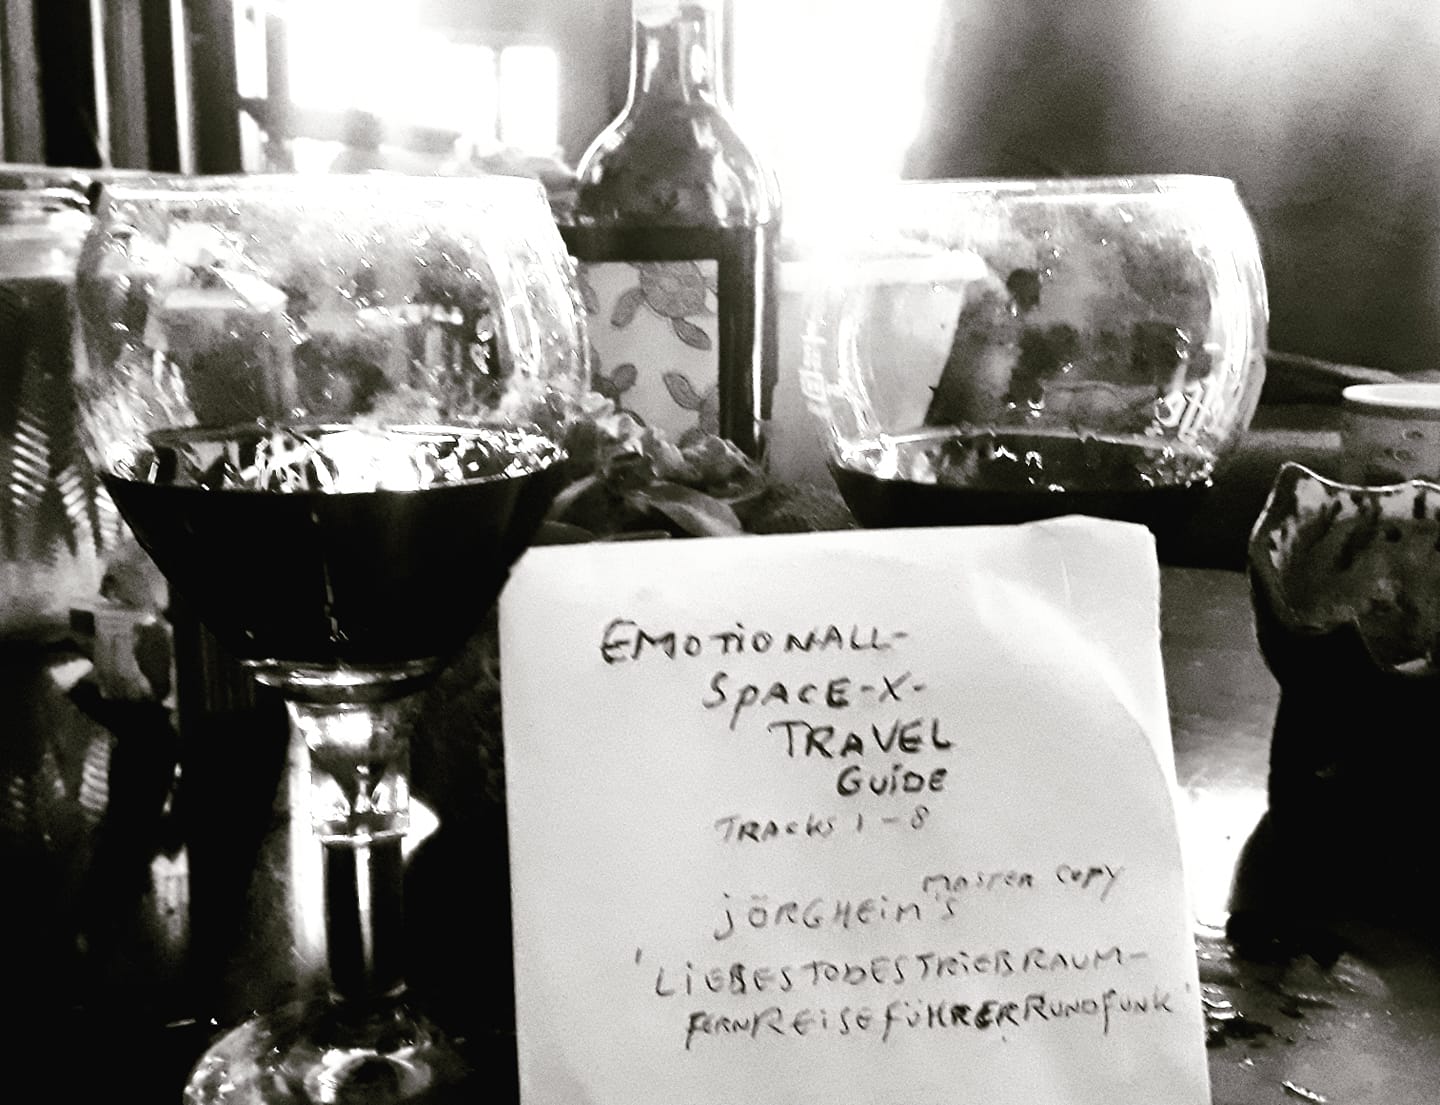 EMOTIONALL-
SPACE-X-
TRAVEL
GUiDE
TRACKS 1-8
MASTER COPY
jÖRGHEiM'S
'LiEBESTODESTRiEBRAUM-
FERNREiSEFÜHRERRUNDFUNK'